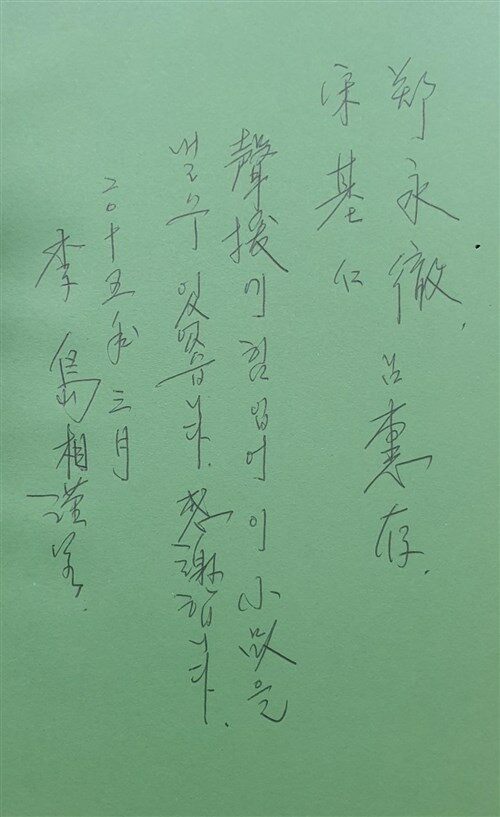 郑永徹, 惠存.
宋基仁
聲援에 힘입어 이 小
낼 수 있었읍니다. 感謝합니다.
二0十五年 三月
李島相 謹呈.